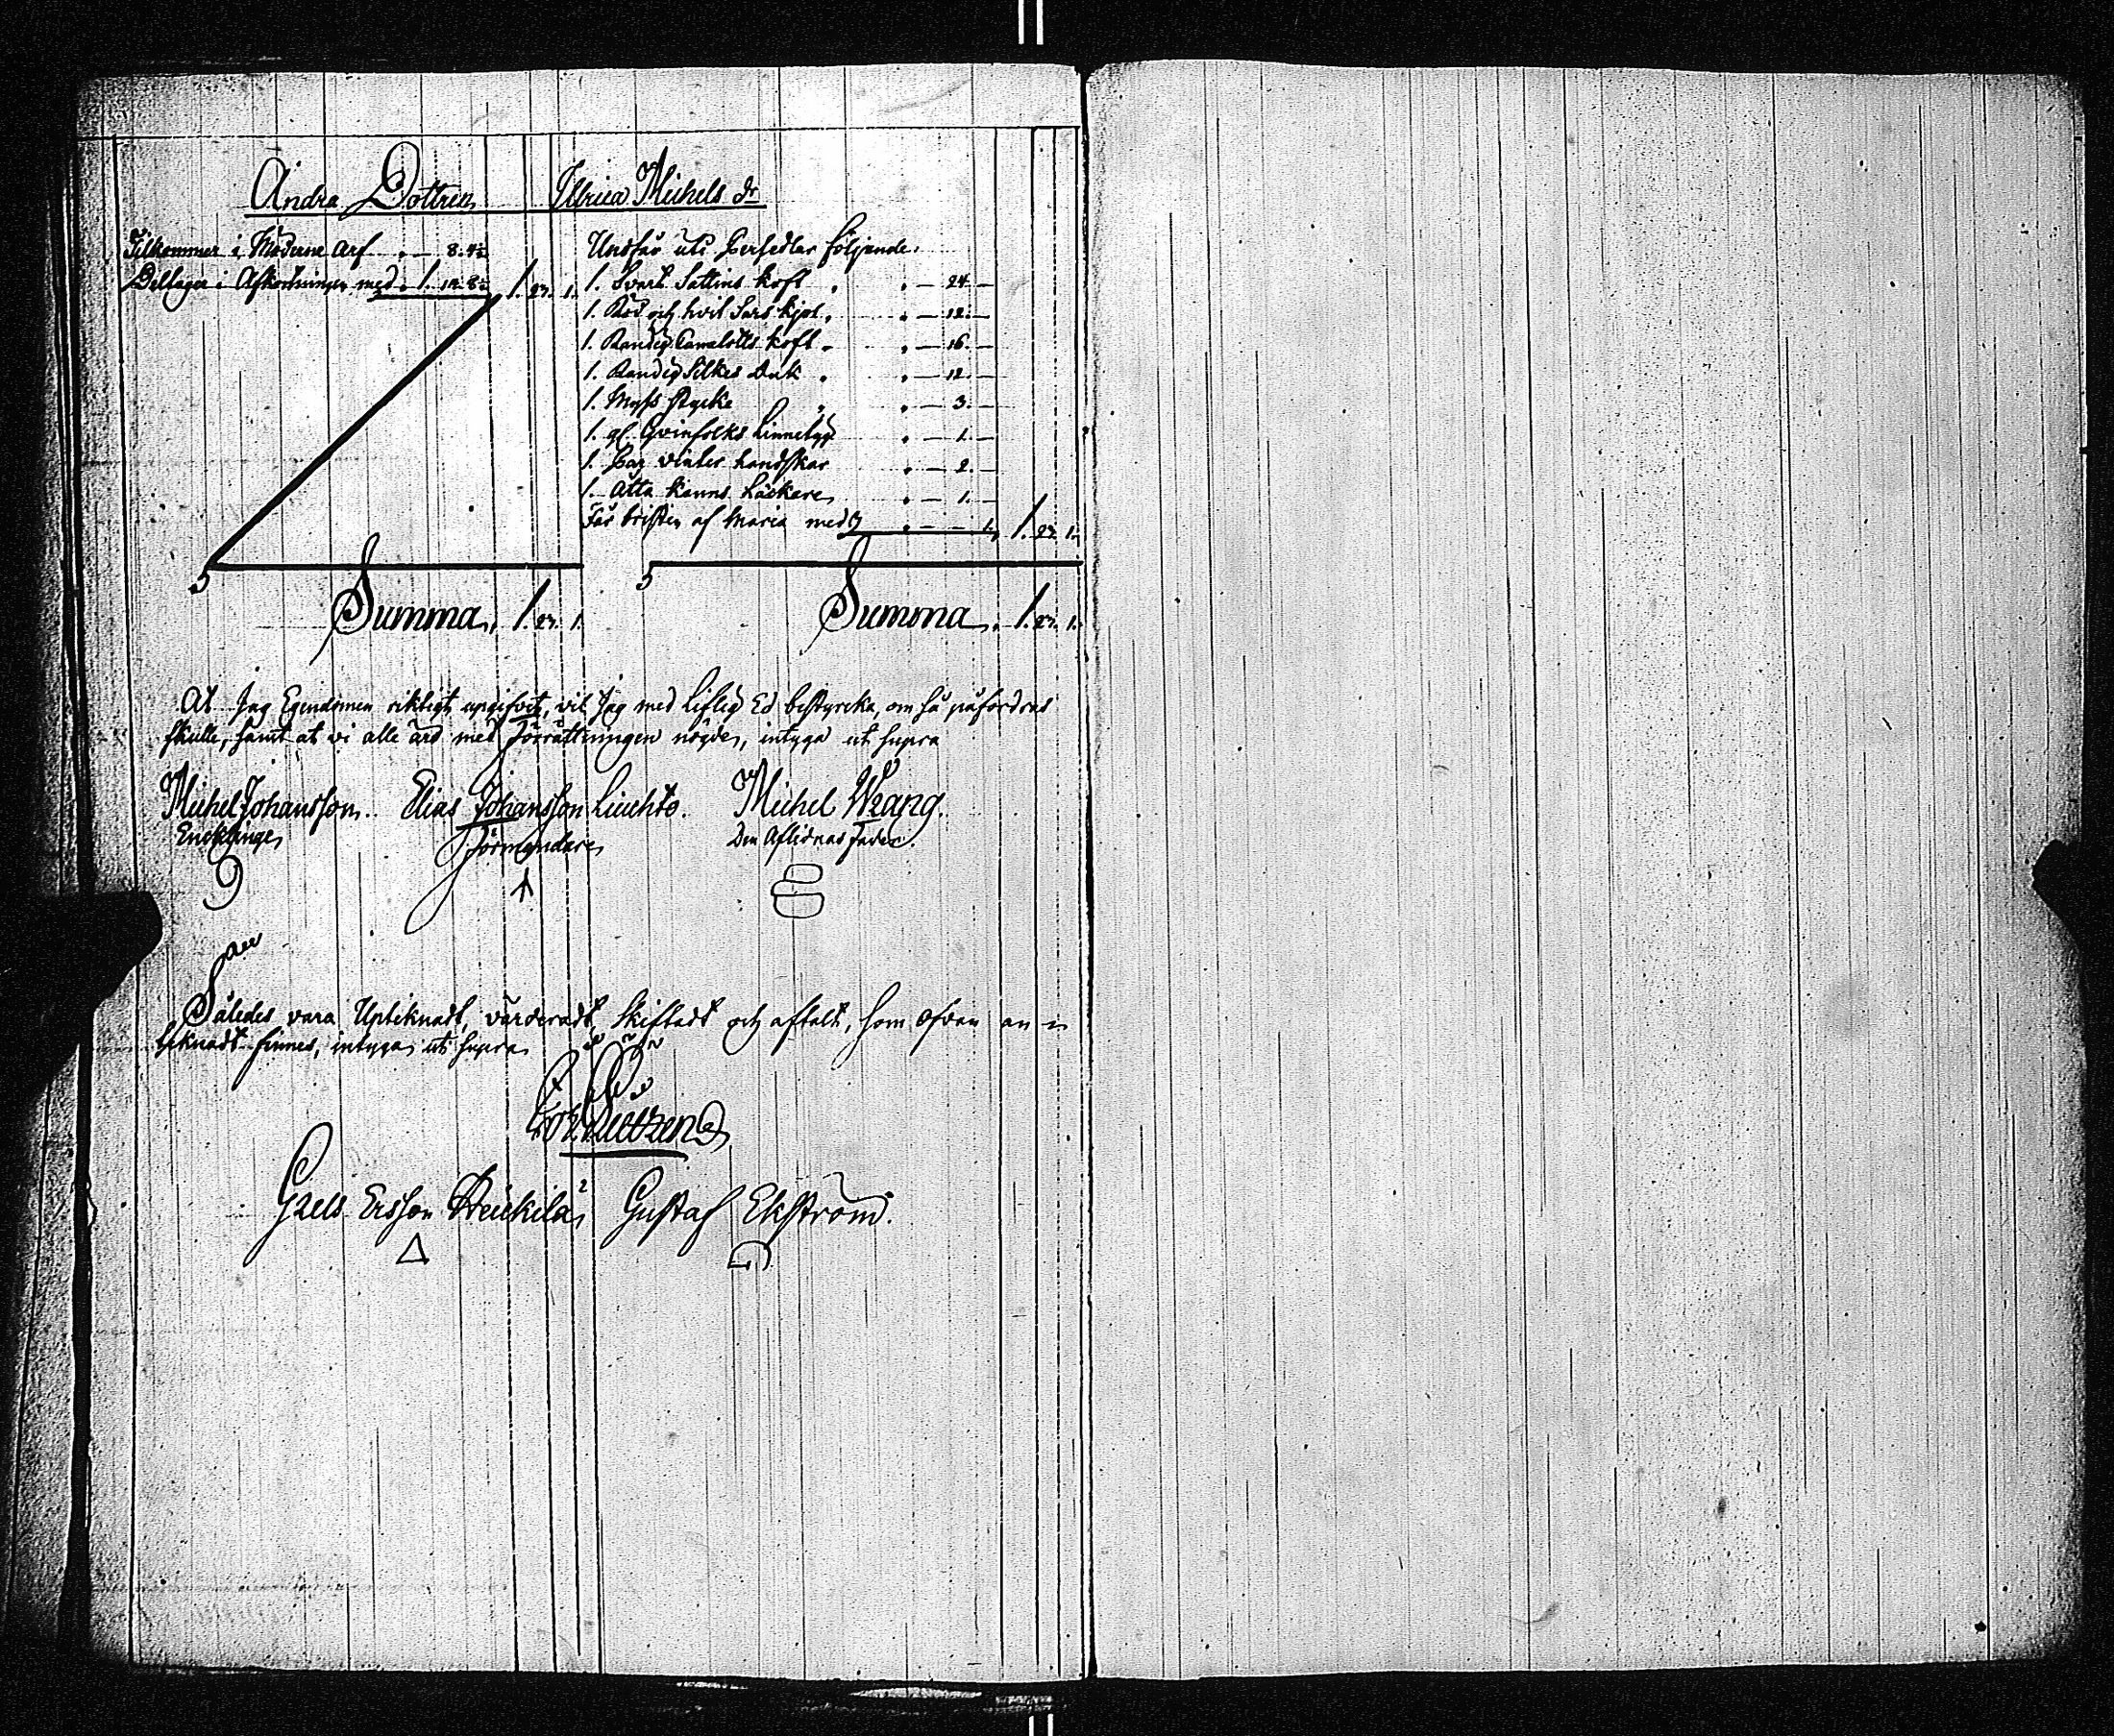 Andra Dottren Ulrica Michels dr
Tilkommer i Möderne Arf . — 8. 4½
Deltager i Afkortningen med . 1. 18. 8½ 1. 27. 1.
Undfår uti Persedlar följande.
1. Svart Sattins koft . . — 24. —
1. Röd och hvit Sars kjol . . — 12. —
1. Randig Camelotts koft . . — 16. —
1. Randig Silkes Duk . . — 12. —
1. Myss stycke . . — 3. —
1. gl. Qvinfolks Linnetyg . — 1. —
1. Par vinter handskar . — 2. —
1. Åtta kanns Läckare . — 1. —
Får bristen af Maria med . — — 1. 1. 23. 1.
Summa. 1. 27. 1.
Summa. 1. 27. 1.
At Jag Egendomen riktigt upgifvit, vil Jag med Liflig Ed bestyrcka, om så påfordras
skulle, samt at vi alle äro med Förrättningen nögde, intyga ut supra
Michel Johansson. Elias Johansson Liuchto. Michel Wrang.
Enckling Förmyndare Den Aflidnas fader.
Således vara Upteknadt, värderadt, Skiftadt och aftalt, som ofvan an-
teknadt finnes, intyga ut supra
Grels Ersson Heickilä Gustaf Ekström.